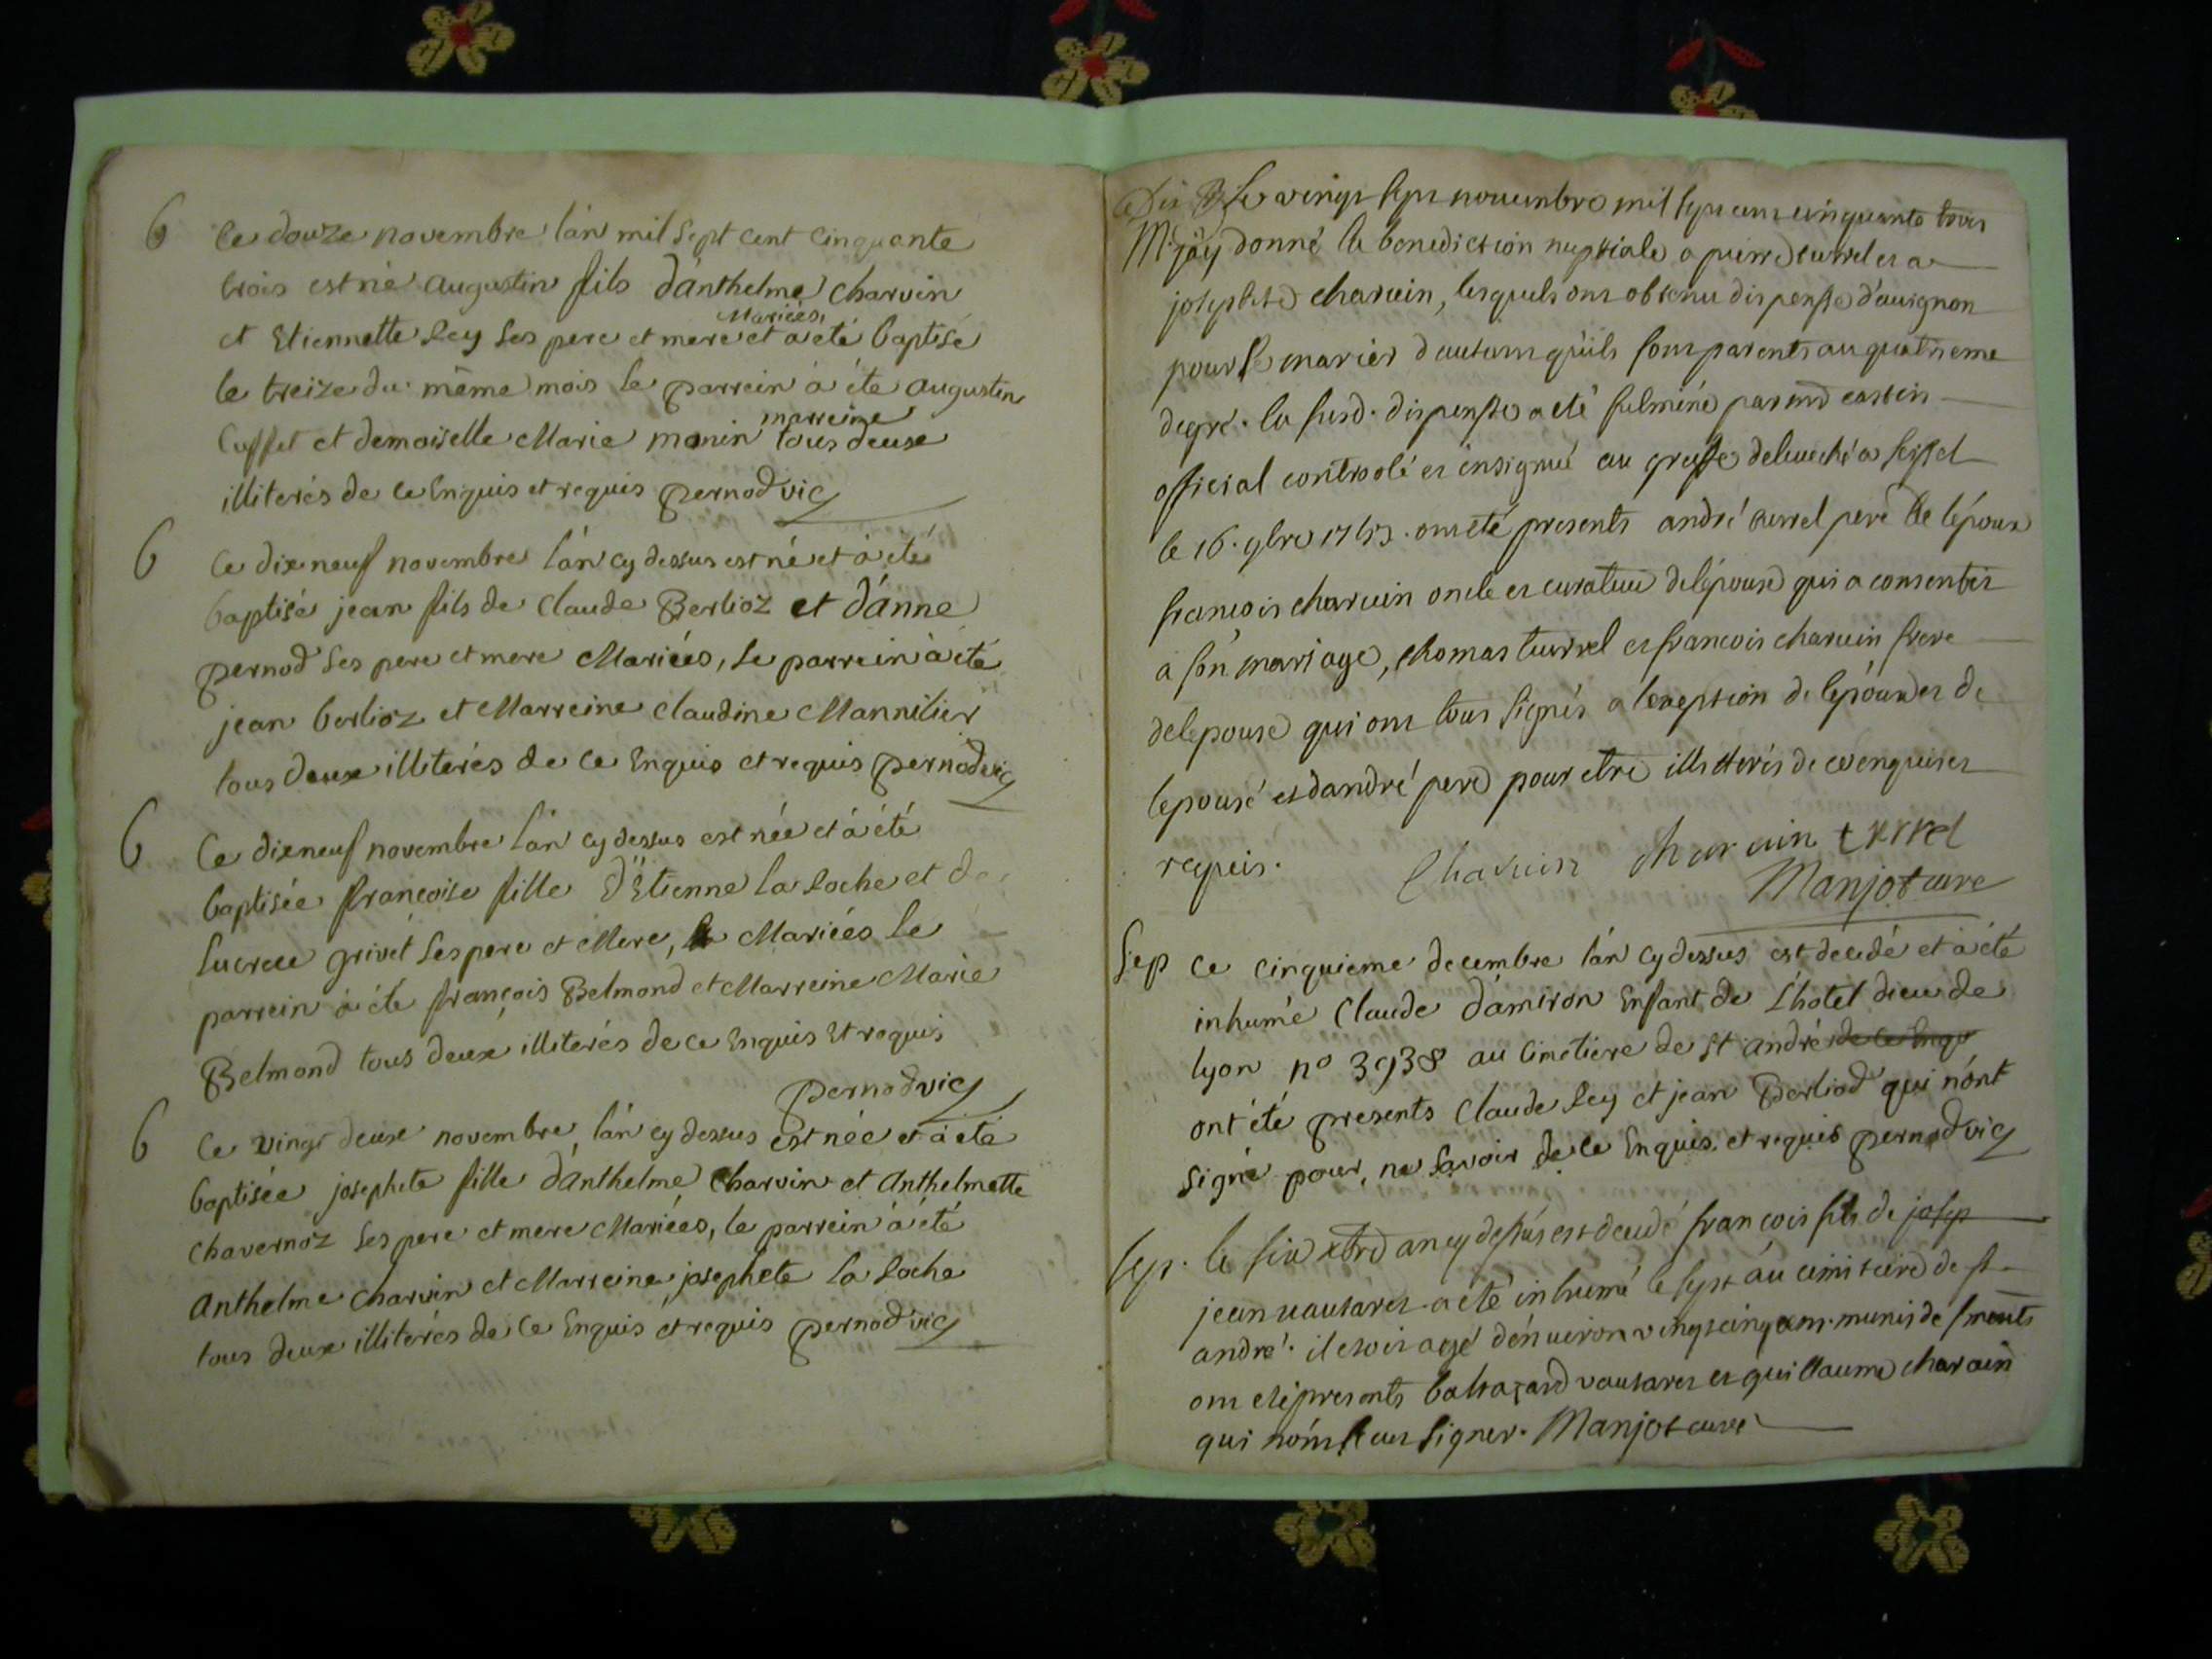 6 Ce douze novembre l'án mil Sept cent Cinquante
trois est né augustin fils dánthelme Charvin
Mariées,
et Etiennette Rey Ses pere et mere et à été baptisé
le treize du même mois le parrein à éte augustin
marreine
et demoiselle Marie monin tous deuxe
illiterés de ce Enquis et requis pernod vic
6 Ce dixneuf novembre l'án cy dessus est né et à été
baptisé jean fils de Claude Berlioz et dánne
pernod Ses pere et mere Mariées, Le parrein à été
jean berlioz et Marreine Claudine Mannilier
tous deuxe illiterés de ce Enquis et requis pernod vic
6 Ce dixneuf novembre l'án cy dessus est née et à été
baptisée françoise fille d'Etienne la Roche et de
Lucrece grivet Ses pere et Mere, Mariées Le
parrein à éte françois Belmond et Marreine Marie
Belmond tous deuxe illiterés de ce Enquis Et requis
pernod vic
6 Ce vingt deuxe novembre, l'án cy dessus est née et à été
baptisée josephete fille dánthelme Charvin et Anthelmette
Chavernoz Ses pere et mere Mariées, le parrein à été
Anthelme Charvin et Marreine josephete la Roche
tous deux illiterés de ce Enquis et requis pernod vic
Le vingt sept novembre mil sept cent cinquante trois
M. j'ay donné la benediction nuptiale a pierre turrel et a
josephte charvin, lesquels ont obtenu dispense d'avignon
pour se marier d'autant qu'ils sont parents au quatrieme
degré. la susd. dispense a eté fulminé par md cassin
official controolé et insignué au greffe de leveché a seissel
le 16. 9bre 1753. ont eté presents andré turrel pere de lépoux
francois charvin oncle et curateur de lépouse qui a consenti
a són mariage, thomas turrel et francois charvin frere
de lepouse qui ont tous signés a lexeption de lépoux et de
lepouse et dandré pere pour etre illitterés de ce enquis et
requis. Charvin charvin turrel
Manjot curé
Sep Ce cinquieme decembre l'án cy dessus est decedé et à été
inhumé Claude dámiron Enfant de L'hotel dieu de
lyon no 3938 au Cimetiere de St andré de ce Enqu
ont été presents Claude Rey et jean Berliod qui nónt
signé pour, ne Savoir de ce Enquis, et requis pernod vic
Sep. le six xbre an cy dessus est decedé francois fils de josep
jean vautaret a eté inhumé le sept au cimiteire de st
andré. il etoit agé dénviron vingt cinq ans. munis de s ments
ont eté presents baltazard vautaret et guillaume charvin
qui nónt sceu signer. Manjot curé